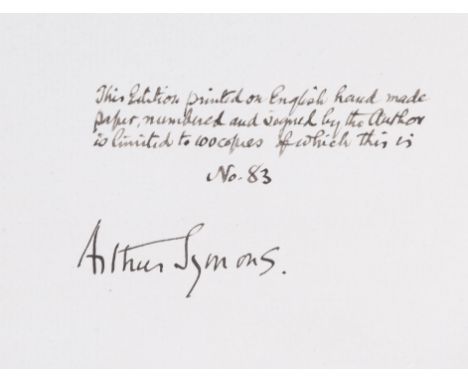 This Edition printed on English hand made
paper, numbered and signed by the Author
is limited to 100 copies of which this is
No. 83
Arthur Symons.